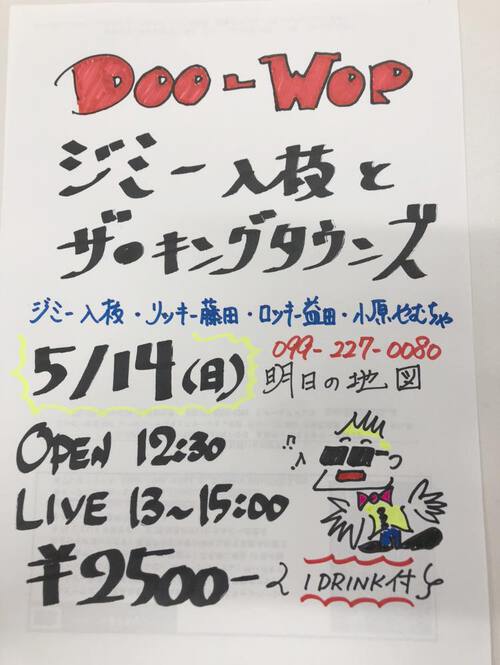 DOO-WOP
ジミー入枝と
ザ・キングタウンズ
ジミー入枝・リッキー藤田・ロッキー益田・小原やむちゃ
5/14(日)
099-227-0080
明日の地図
OPEN 12:30
LIVE 13~15:00
¥2500-
1 DRINK付